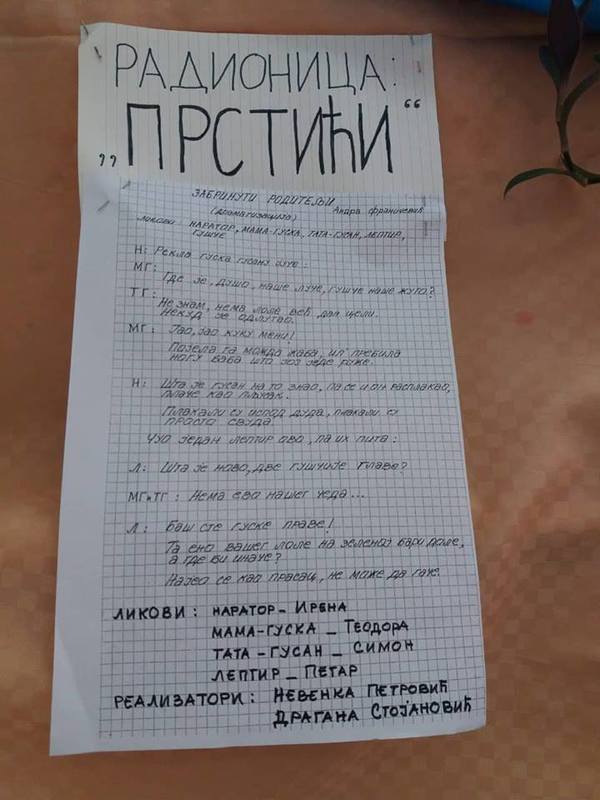 РАДИОНИЦА:
„ПРСТИЋИ“
ЗАБРИНУТИ РОДИТЕЉИ
(драматизација) Андра Франичевић
Ликови: НАРАТОР, МАМА-ГУСКА, ТАТА-ГУСАН, ЛЕПТИР,
ГУШЧЕ
Н: Рекла гуска гусану јуче:
МГ: Где је, душо, наше луче, гушче наше жуто?
ТГ: Не знам, нема лоле већ дан цели.
Некуд је одлутао.
МГ: Јао, јао куку мени!
Појела га можда жаба, ил' пребила
ногу баба што јој једе руже.
Н: Шта је гусан на то знао, па се и он расплакао,
плаче као пљусак.
Плакали су испод дуда, плакали су
просто свуда.
Чуо један лептир ово, па их пита:
Л: Шта је ново, две гушчије главе?
МГ и ТГ: Нема ево нашег чеда...
Л: Баш сте гуске праве!
Та ено вашег лоле на зеленој бари доле,
а где би иначе?
Најео се као прасац, не може да гаче.
ЛИКОВИ: НАРАТОР - ИРЕНА
МАМА-ГУСКА - ТЕОДОРА
ТАТА-ГУСАН - СИМОН
ЛЕПТИР - ПЕТАР
РЕАЛИЗАТОРИ: НЕВЕНКА ПЕТРОВИЋ
ДРАГАНА СТОЈАНОВИЋ